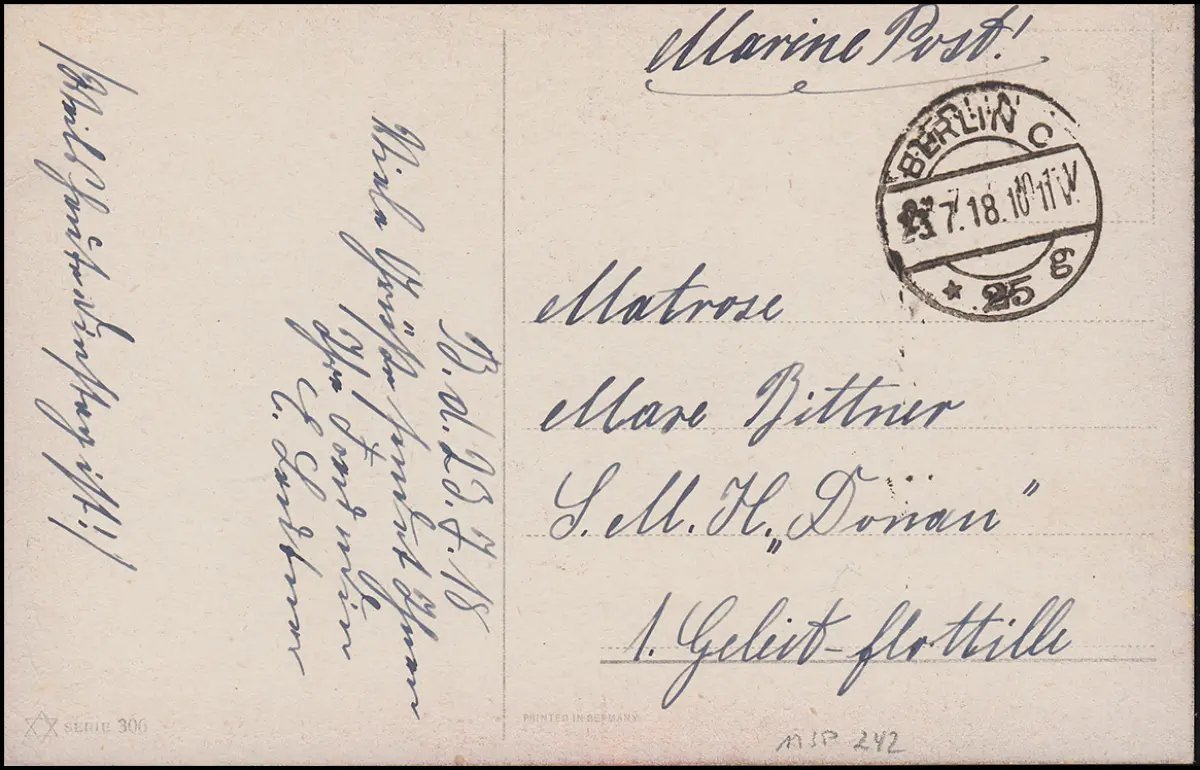 Marine Post!
BERLIN C
23.7.18.10-11V.
* 25 g
Matrose
Marx Bittner
S. M. H. „Donau“
1. Geleit-flottille
B. d. 23.7.18
Viele Grüße sendet Ihnen
Ihr
E.
ist!/
SERIE 306
PRINTED IN GERMANY
MSP 242